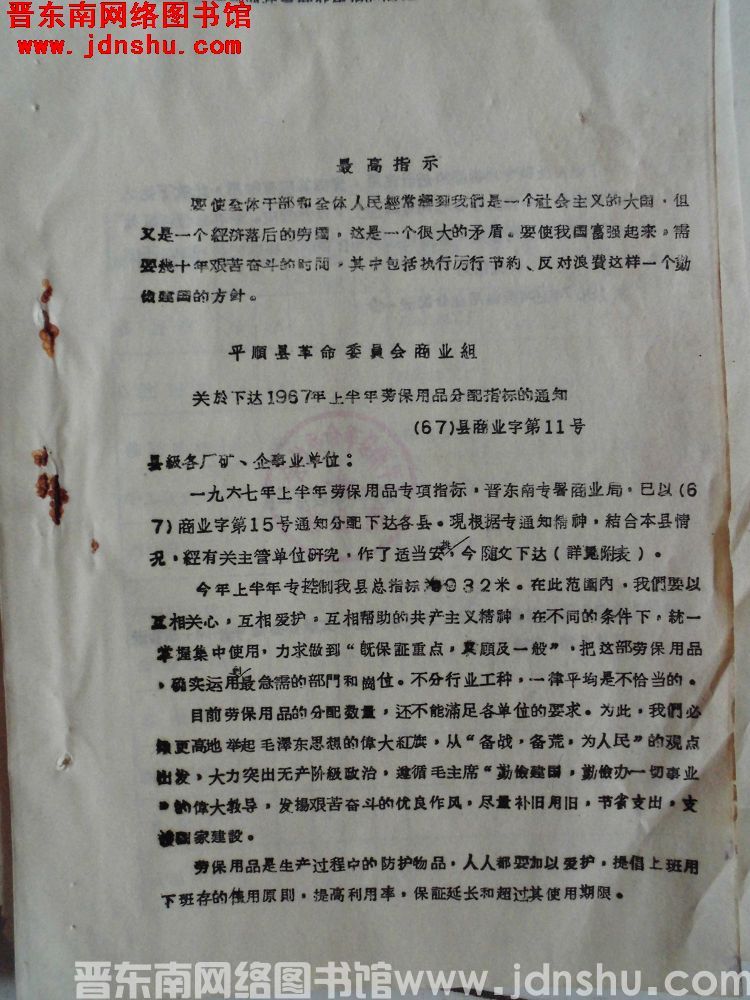 晋东南网络图书馆
www.jdnshu.com
最高指示
要使全体干部和全体人民經常想到我們是一个社会主义的大国，但
又是一个經济落后的穷国，这是一个很大的矛盾。要使我国富强起来，需
要幾十年艰苦奋斗的时間，其中包括执行厉行节約、反对浪費这样一个勤
儉建国的方針。
平順县革命委員会商业組
关於下达1967年上半年劳保用品分配指标的通知
(67)县商业字第11号
县級各厂矿、企事业单位：
一九六七年上半年劳保用品专項指标，晋东南专署商业局，已以(6
7)商业字第15号通知分配下达各县。現根据专通知精神，結合本县情
况，經有关主管单位研究，作了适当安，今随文下达(詳見附表)。
今年上半年专控制我县总指标 932米。在此范围內，我們要以
互相关心，互相爱护，互相帮助的共产主义精神，在不同的条件下，統一
掌握集中使用，力求做到“旣保証重点，兼顧及一般”，把这部劳保用品
，确实运用最急需的部門和崗位。不分行业工种，一律平均是不恰当的。
目前劳保用品的分配数量，还不能滿足各单位的要求。为此，我們必
須更高地举起毛澤东思想的偉大紅旗，从“备战，备荒，为人民”的观点
出发，大力突出无产阶級政治，遵循毛主席“勤儉建国，勤儉办一切事业
”的偉大教导，发揚艰苦奋斗的优良作风，尽量补旧用旧，节省支出，支
援国家建設。
劳保用品是生产过程中的防护物品，人人都要加以爱护，提倡上班用
下班存的使用原则，提高利用率，保証延长和超过其使用期限。
晋东南网络图书馆www.jdnshu.com